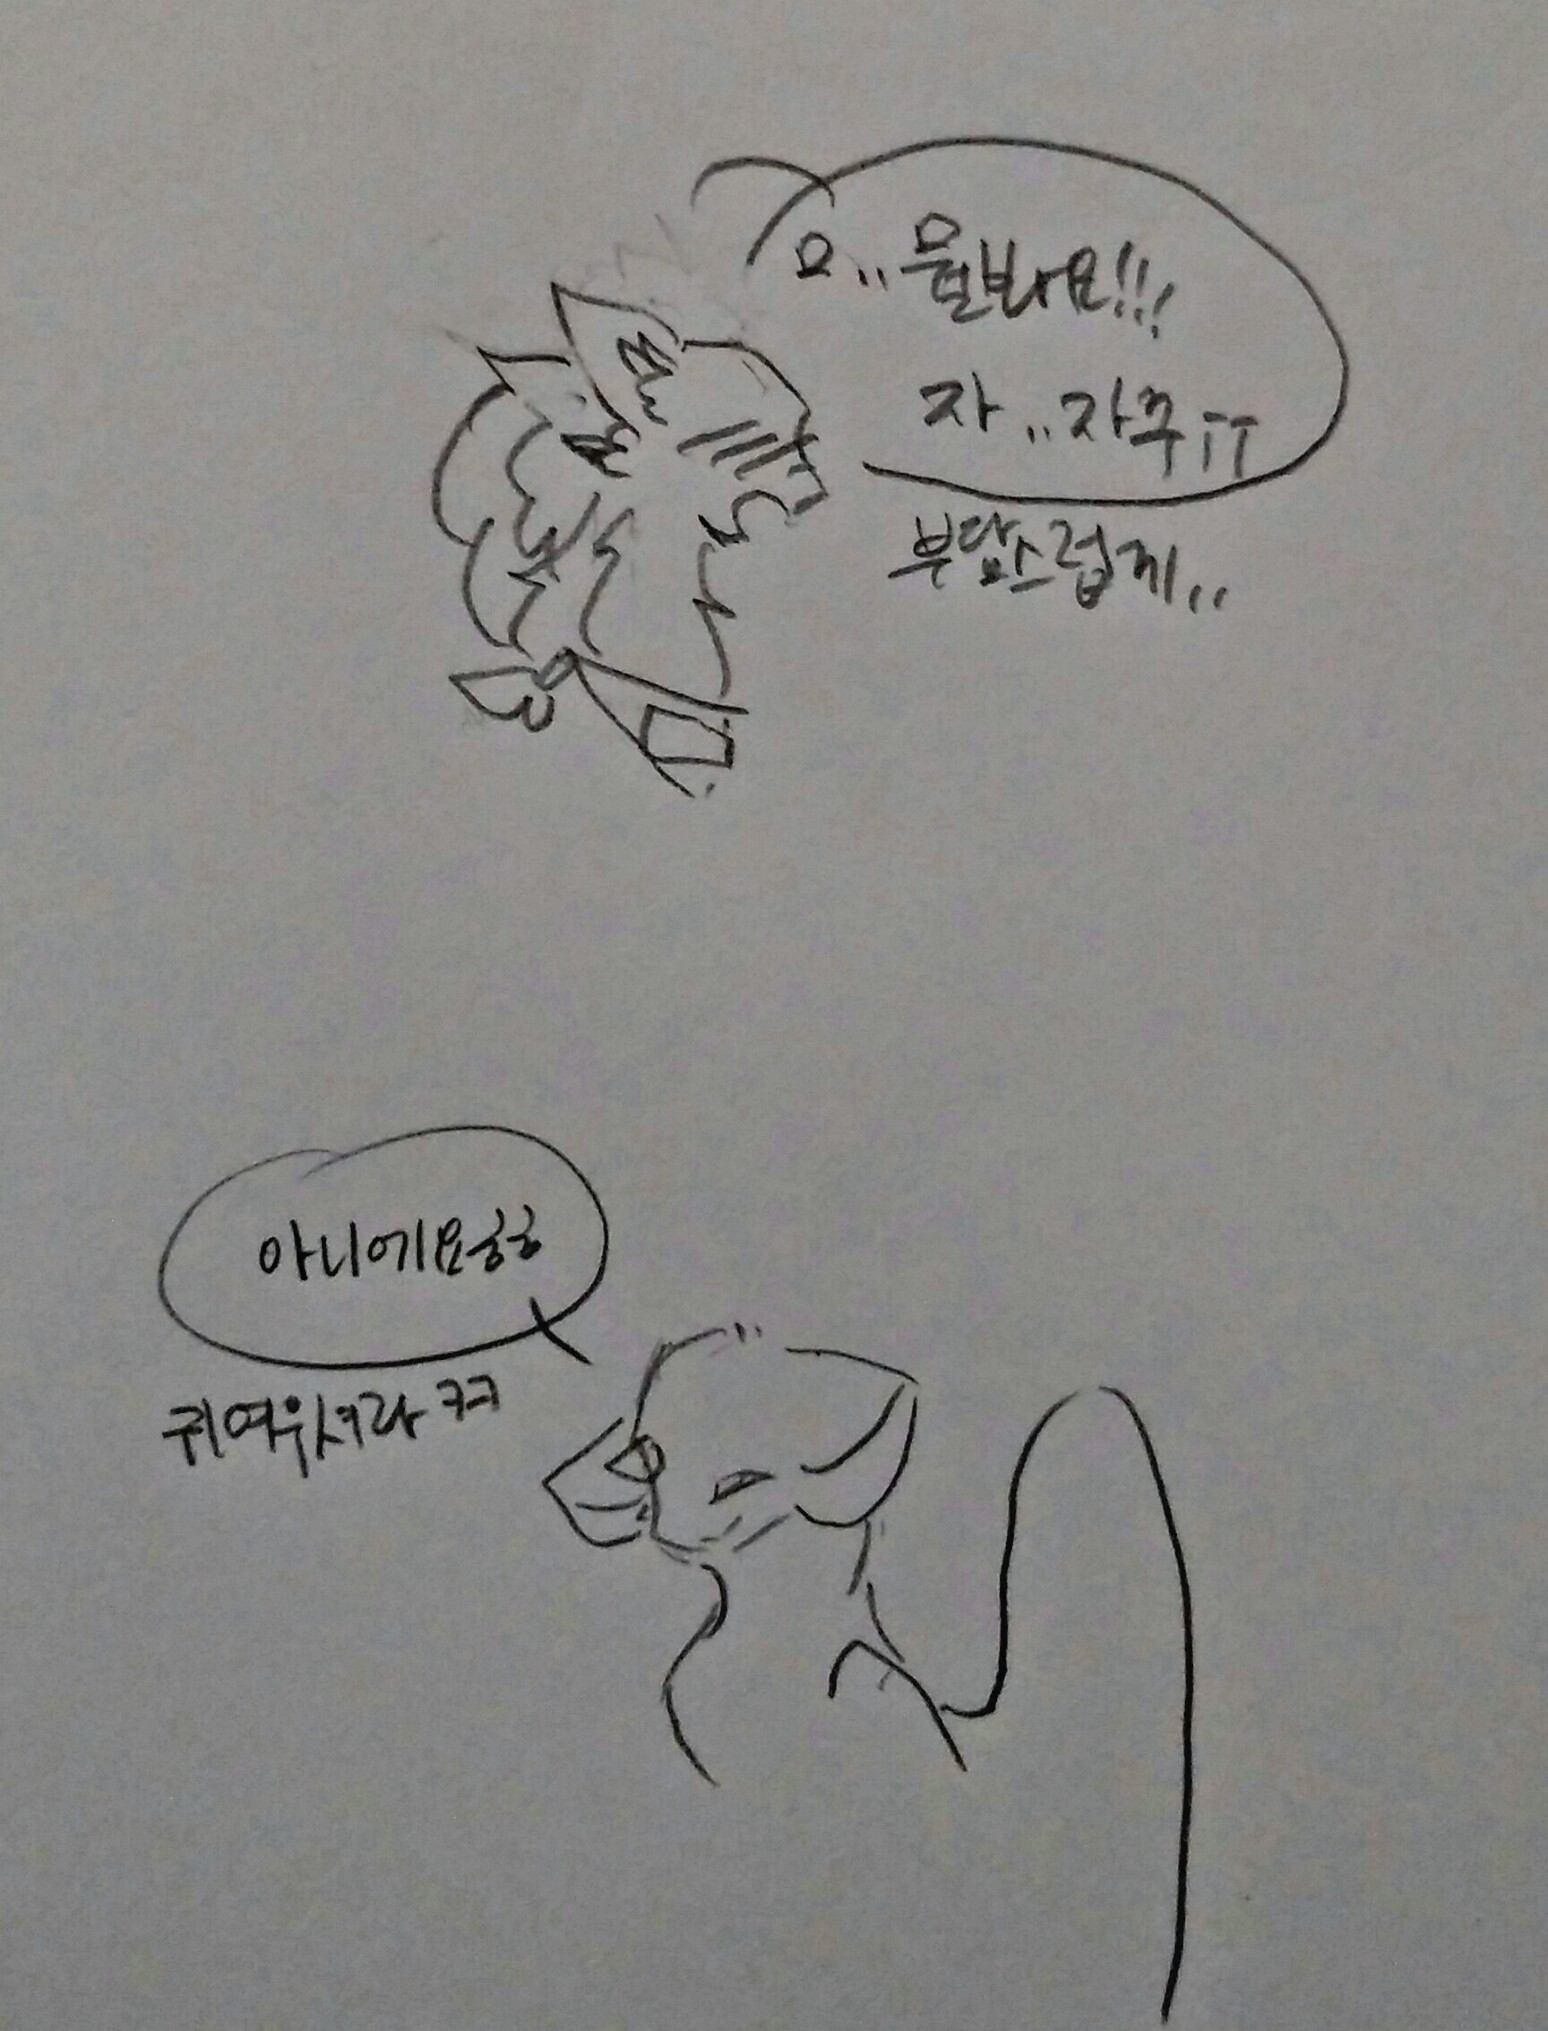 ㅁ..뭘봐요!!!
자..자꾸ㅠ
부담스럽게..
아니에요ㅎㅎ
귀여우셔라ㅋㅋ